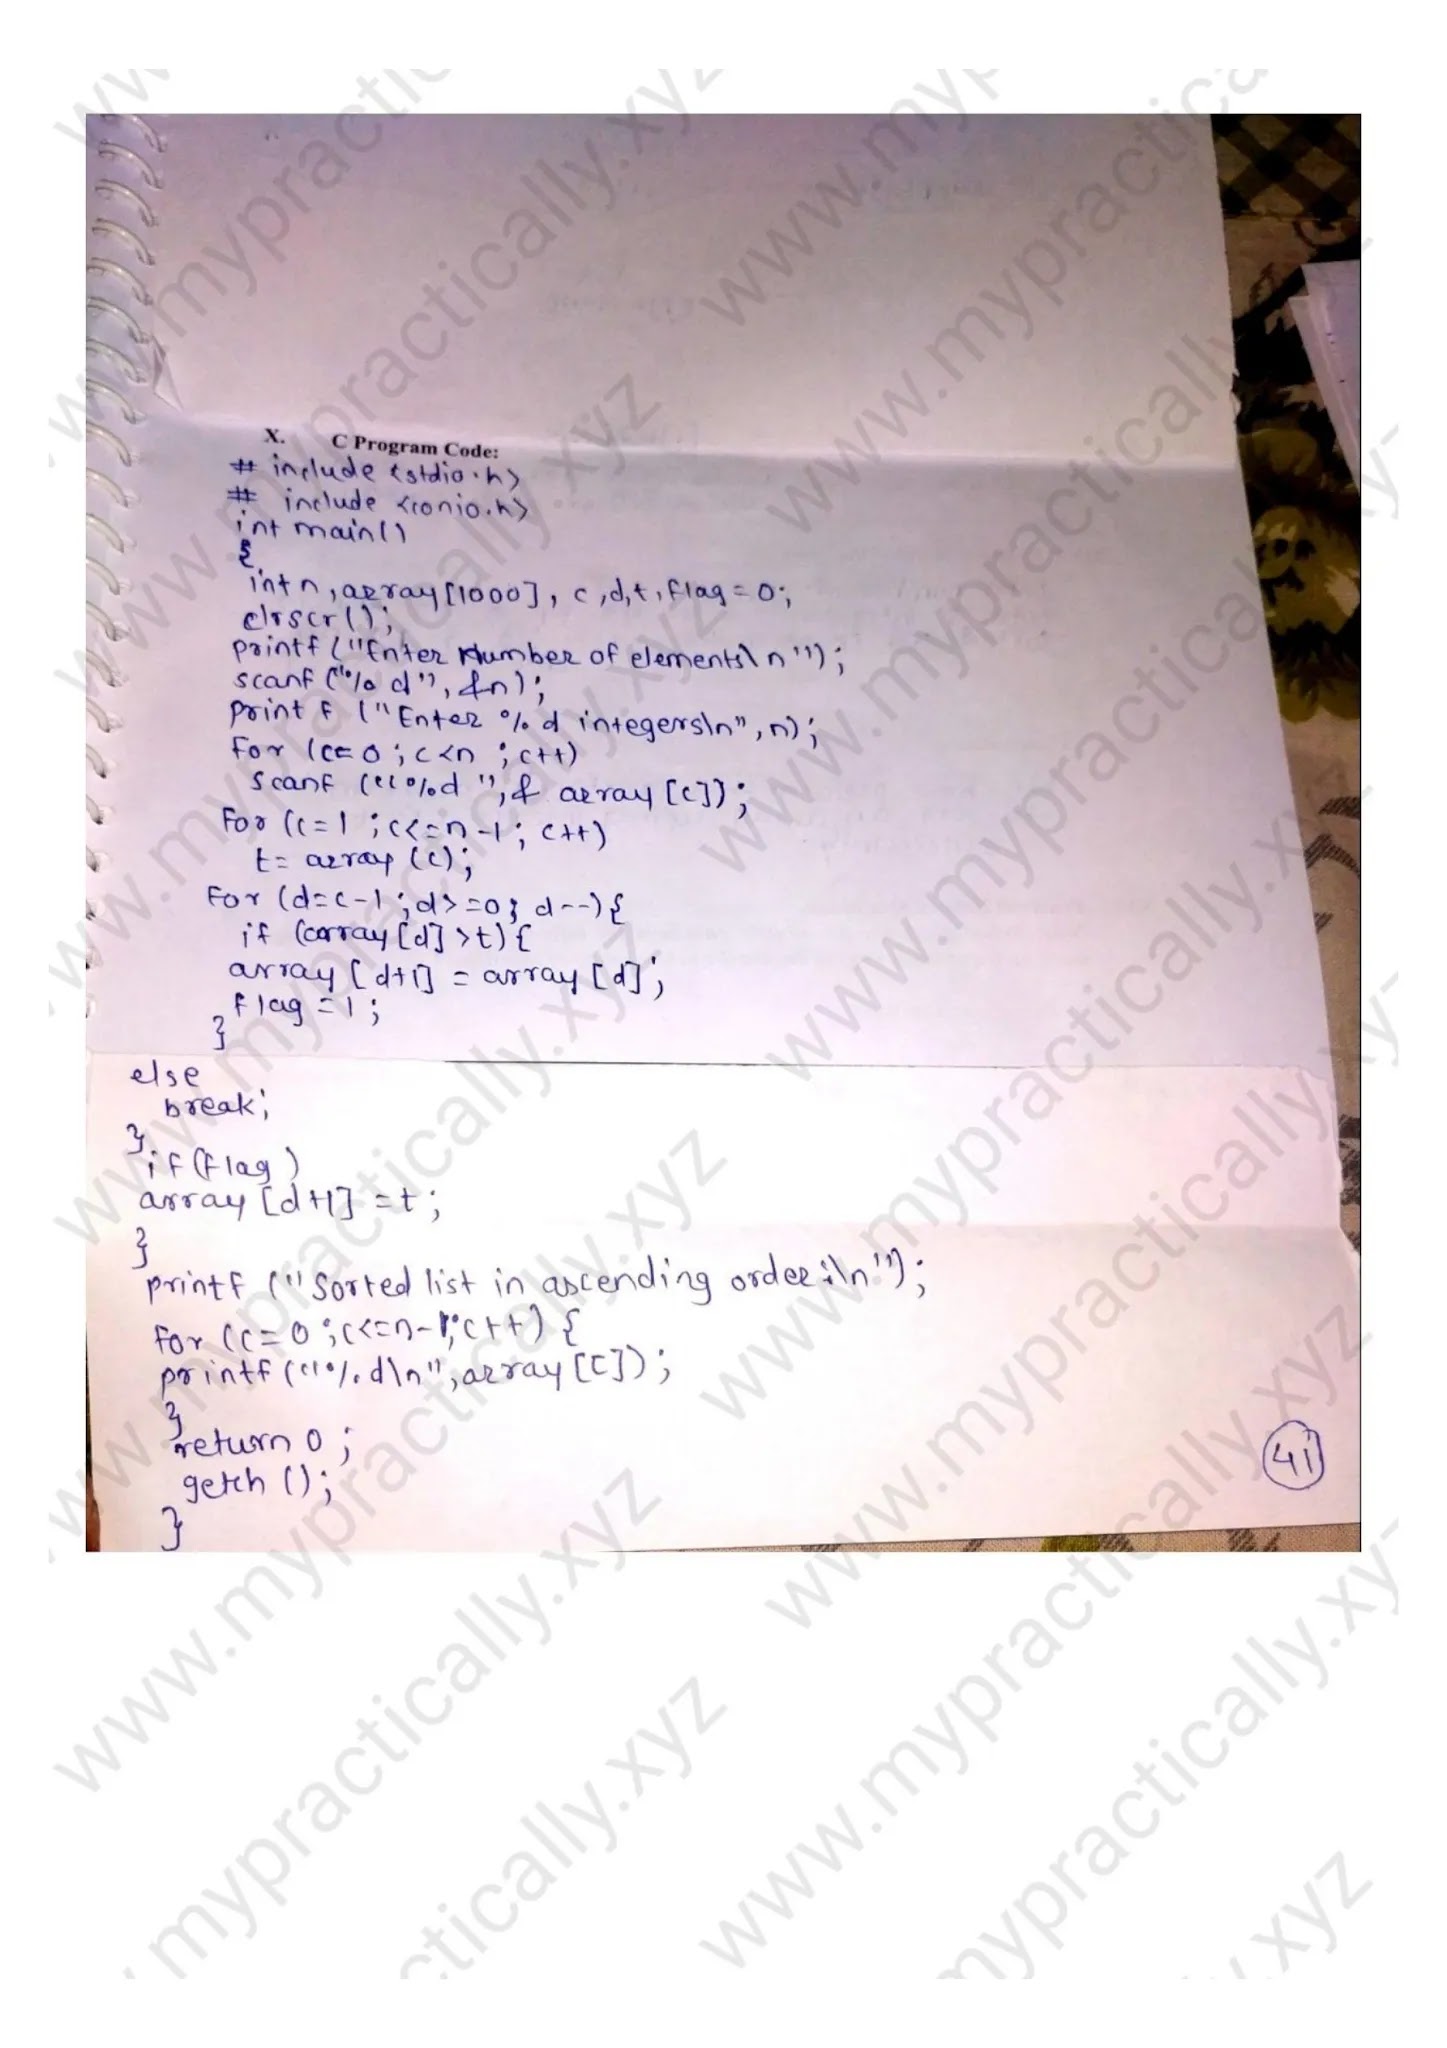 X. C Program Code:
# include <stdio.h>
# include <conio.h>
int main()
{
int n, array[1000], c, d, t, flag = 0;
clrscr();
printf ("Enter Number of elements\n");
scanf ("%d", &n);
print f ("Enter %d integers\n", n);
for (c= 0 ; c <n ; c++)
scanf ("%d", & array [c]);
for (c = 1 ; c<=n -1 ; c++)
t= array (c);
for (d=c-1 ; d>=0; d--){
if (carray[d] >t){
array [d+1] = array [d];
flag = 1 ;
}
else
break;
}
if (flag )
array [d+1] =t ;
}
printf ("Sorted list in ascending order:\n");
for (c=0 ; c<=n-1; c++) {
printf ("%d\n", array [c]);
}
return 0 ;
getch ();
}
41
www.mypractically.xyz